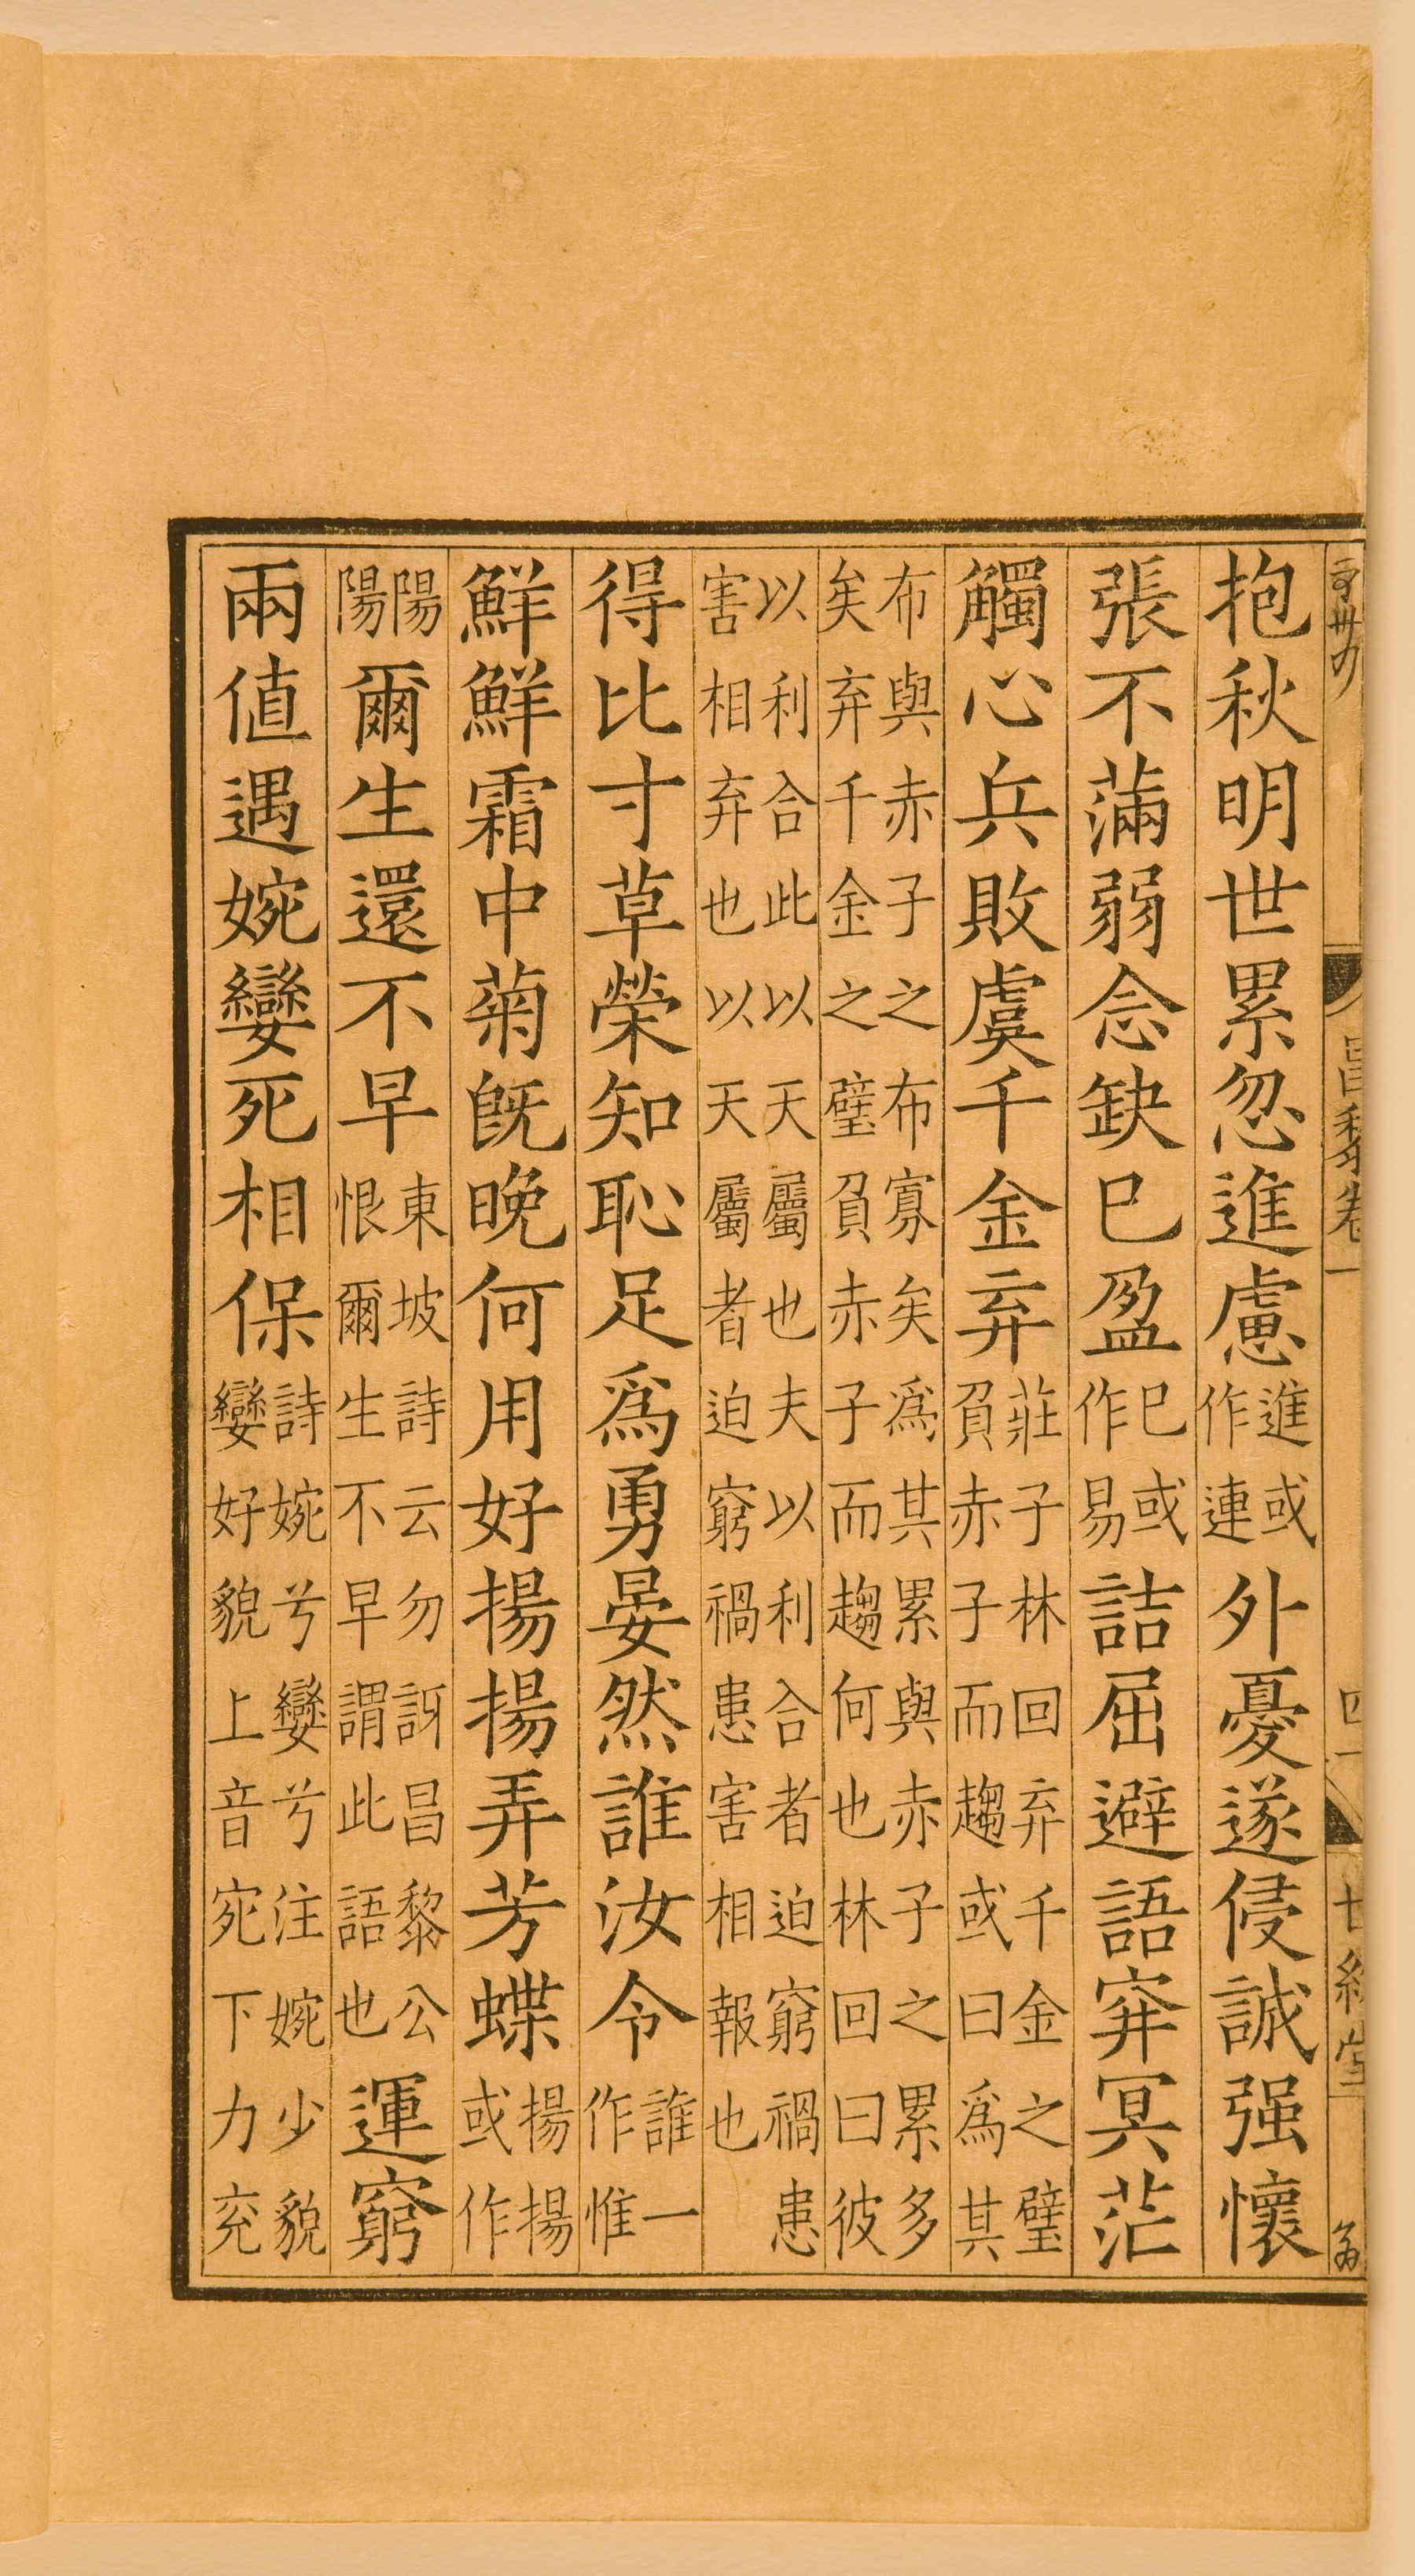 抱秋明世累忽進慮進或作連外憂遂侵誠强懷
張不滿弱念缺巳盈巳或作易詰屈避語穽冥茫
觸心兵敗虞千金弃莊子林回弃千金之璧負赤子而趨或曰爲其
布與赤子之布寡矣爲其累與赤子之累多矣弃千金之璧負赤子而趨何也林回曰彼
以利合此以天屬也夫以利合者迫窮禍患害相弃也以天屬者迫窮禍患害相報也
得比寸草榮知恥足爲勇晏然誰汝令誰一作惟
鮮鮮霜中菊旣晚何用好揚揚弄芳蝶揚揚或作
陽陽爾生還不早東坡詩云勿訝昌黎公恨爾生不早謂此語也運窮
兩値遇婉孌死相保詩婉兮孌兮注婉少貌孌好貌上音宛下力兗
昌黎卷一